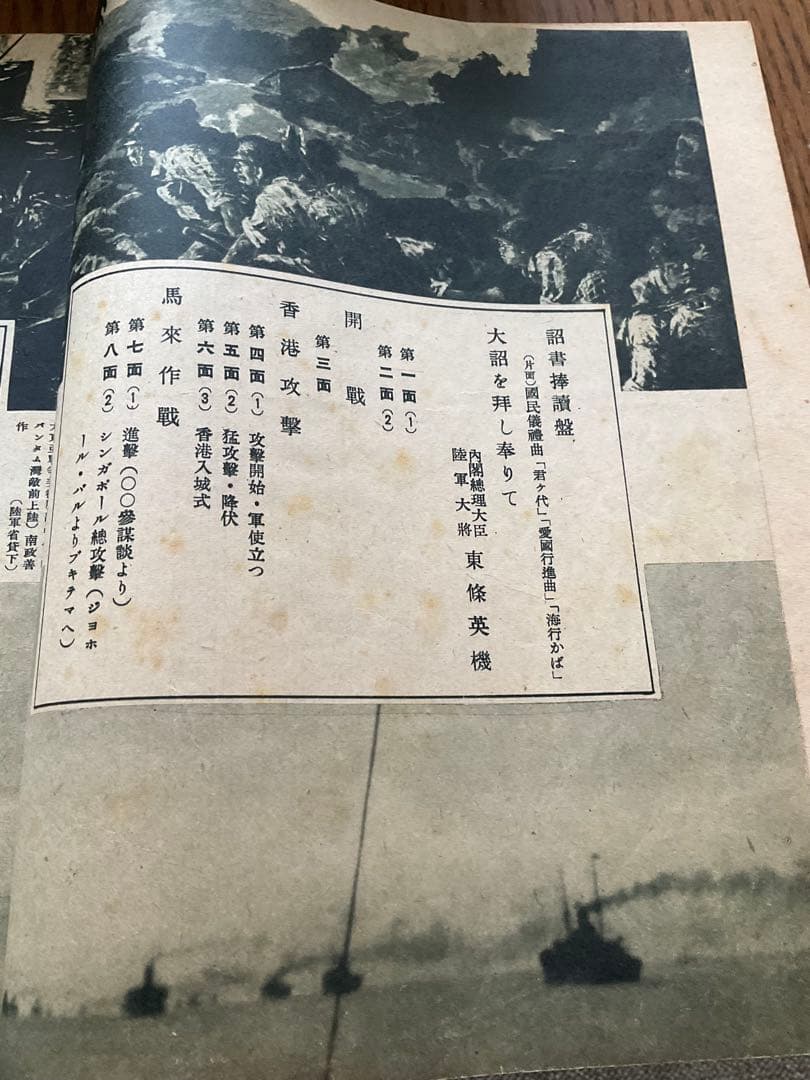 詔書捧讀盤
(片面)國民儀禮曲「君ヶ代」「愛國行進曲」「海行かば」
大詔を拜し奉りて
內閣總理大臣
陸軍大將
東條英機
第一面(1)
第二面(2)
開戰
第三面
香港攻擊
第四面(1) 攻擊開始・軍使立つ
第五面(2) 猛攻擊・降伏
第六面(3) 香港入城式
馬來作戰
第七面(1) 進擊(〇〇參謀談より)
第八面(2) シンガポール總攻擊(ジョホ
ール・バルよりブキテマへ)
バンタム灣敵前上陸)南政善
作
(陸軍省貸下)